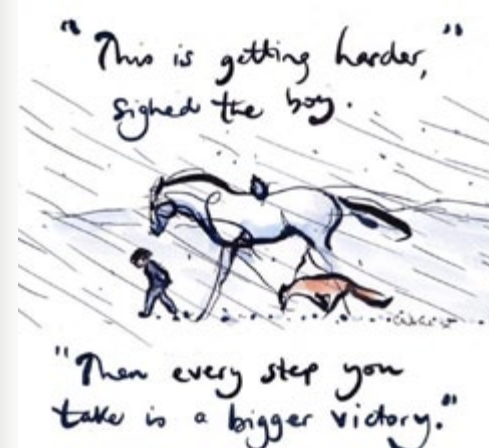 "This is getting harder,"
sighed the boy.
"Then every step you
take is a bigger victory."